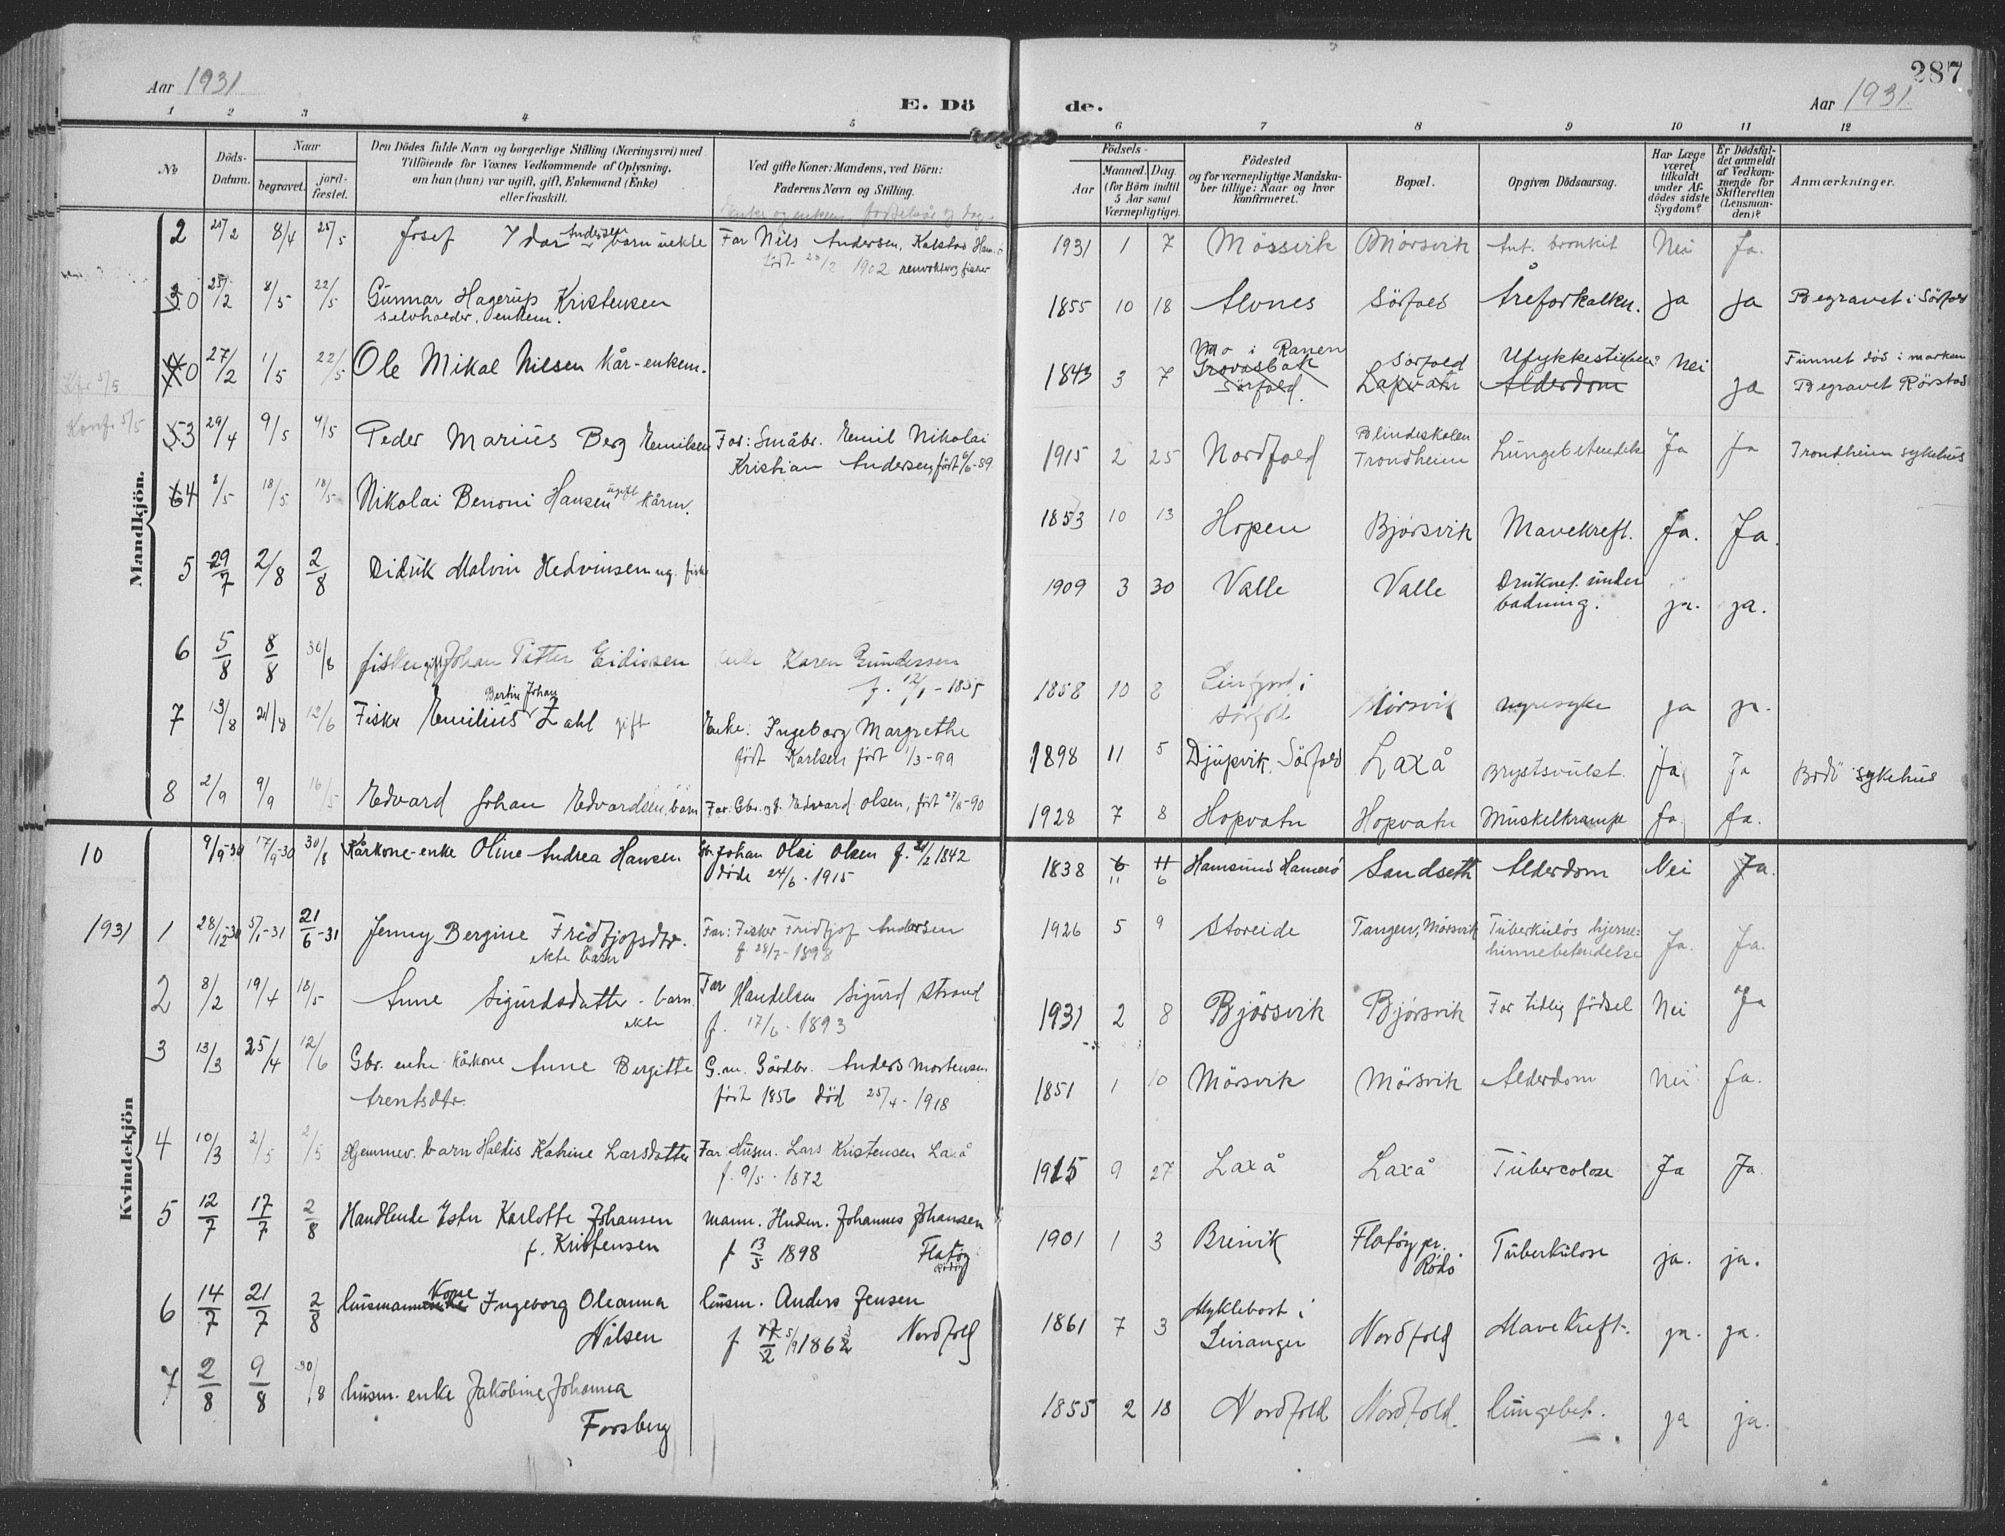 287
Aar 1931
E. Dö de.
Aar 1931
1 2 3 4 5 6 7 8 9 10 11 12
No
Döds-
Datum.
Naar
begravet.
jord-
fæstet.
Den Dödes fulde Navn og borgerlige Stilling (Næringsvei) med
Tilföiende for Voxnes Vedkommende af Oplysning,
om han (hun) var ugift, gift, Enkemand (Enke)
eller fraskilt.
Ved gifte Koner: Mandens, ved Börn:
Faderens Navn og Stilling.
Födsels-
Aar
Maaned.
Dag.
(for Börn indtil
5 Aar samt
Værnepligtige).
Födested
og for værnepligtige Mandska-
ber tillige: Naar og hvor
konfirmeret.
Bopæl.
Opgiven Dödsaarsag.
Har Læge
været
tilkaldt
under Af-
dödes sidste
Sygdom?
Er Dödsfal-
det anmeldt
af Vedkom-
mende for
Skifteretten
(Lensman-
den)?
Anmærkninger.
Mandkjön.
2 25/2 8/4 25/5 Josef Idar Andersen barn uekte Far Nils Andersen, Kalstad Ham. 1931 1 7 Mössvik Mørsvik Ant. bronkit Nei Ja.
født 23/2 1902 fisker
0 25/2 8/5 22/5 Gunnar Hagerup Kristensen 1855 10 18 Alvnes Sörfold Åreforkalkn. ja ja Begravet i Sörfold
selvholder, enkem.
0 27/2 1/5 22/5 Ole Mikal Nilsen kår-enkem. 1843 3 7 Mo i Ranen Sörfold Nei ja Funnet død i marken
Sörfold. Laxvatn Alderdom Begravet Rörstad
Konf. 5/5
3 29/4 9/5 9/5 Peder Marius Berg Emilsen Far: Småbr. Emil Nikolai 1915 2 25 Nordfold Blindeskolen Lungebetendels Ja Ja Trondheim sykehus
Kristian Andersen født 6/6-89 Trondheim
4 8/5 18/5 18/5 Nikolai Benoni Hansen ugift kårm. 1853 10 13 Hopen Bjørsvik Mavekreft. Ja. Ja.
5 29/7 2/8 2/8 Didrik Malvin Hedvinsen ug. fisk 1909 3 30 Valle Valle Druknet under ja. ja.
badning.
6 5/8 8/8 30/8 fisker gift Johan Petter Eidissen enke Karen Gundersen 1858 10 8 i Mörsvik nyresyke ja ja.
f. 12/1 - 1855 Sörfold
7 13/8 21/8 12/6 Fisker Emilius Bertin Johan Zahl gift Enke: Ingeborg Margrethe 1898 11 5 Djupvik, Sörfold Laxå Brystsvulst Ja Ja Bodö sykehus
født Karlsen født 1/3-99
8 2/9 9/9 16/5 Edvard Johan Edvardsen, barn Far: Gbr. og f. Edvard Olsen, født 27/8-90 1928 7 8 Hopvatn Hopvatn Muskelkrampe Ja. Ja.
Kvindekjön
10 9/9-30 17/9-30 30/8 Kårkone-enke Oline Andrea Hansen Gbr. Johan Olai Olsen f. 21/2 1842 1838 6 11 Hamsund Hamarö Sandseth Alderdom Nei Ja.
døde 24/6 - 1915 11 6
1931 1 28/12-30 5/1-31 21/6-31 Jenny Bergine Fridtjofsdtr. Far: Fisker Fridtjof Andersen 1926 5 9 Storeide Tangen, Mörsvik Tuberkuløs hjerne- Ja. Ja.
ekte barn f. 28/7 - 1898 hinnebetendelse
2 8/2 19/4 18/5 Anne Sigurdsdatter - barn Far Handelsm Sigurd Strand 1931 2 8 Bjørsvik Bjørsvik For tidlig födsel Nei Ja
ekte f. 17/6 - 1893
3 13/3 25/4 12/6 Gbr. enke kårkone Anne Bergitte G.m. Gårdbr. Anders Mortensen 1851 1 10 Mörsvik Mörsvik Alderdom Nei Ja.
Arentsdtr. født 1856 død 25/4 - 1918
4 10/3 2/5 2/5 Hjemmev. barn Haldis Katrine Larsdatter Far: Husm. Lars Kristensen Laxå 1915 9 27 Laxå Laxå Tubercolose Ja Ja.
f. 9/5 - 1872
5 12/7 17/7 2/8 Handlende Ester Karlotte Johansen mann. Hndm. Johannes Johansen 1901 1 3 Breivik Flatøy pr. Tuberkulose ja. ja.
f. Kristensen f 13/5 1898 Flatøy Rødö
6 14/7 21/7 2/8 husmann kone Ingeborg Oleanna husm. Anders Jensen 1861 7 3 Myklebost i Nordfold Mavekreft. ja. ja.
Nilsen Nordfold Leiranger
7 2/8 9/8 30/8 husm. enke Jakobine Johanna 1855 2 18 Nordfold Nordfold. lungebet. ja ja.
Forsberg